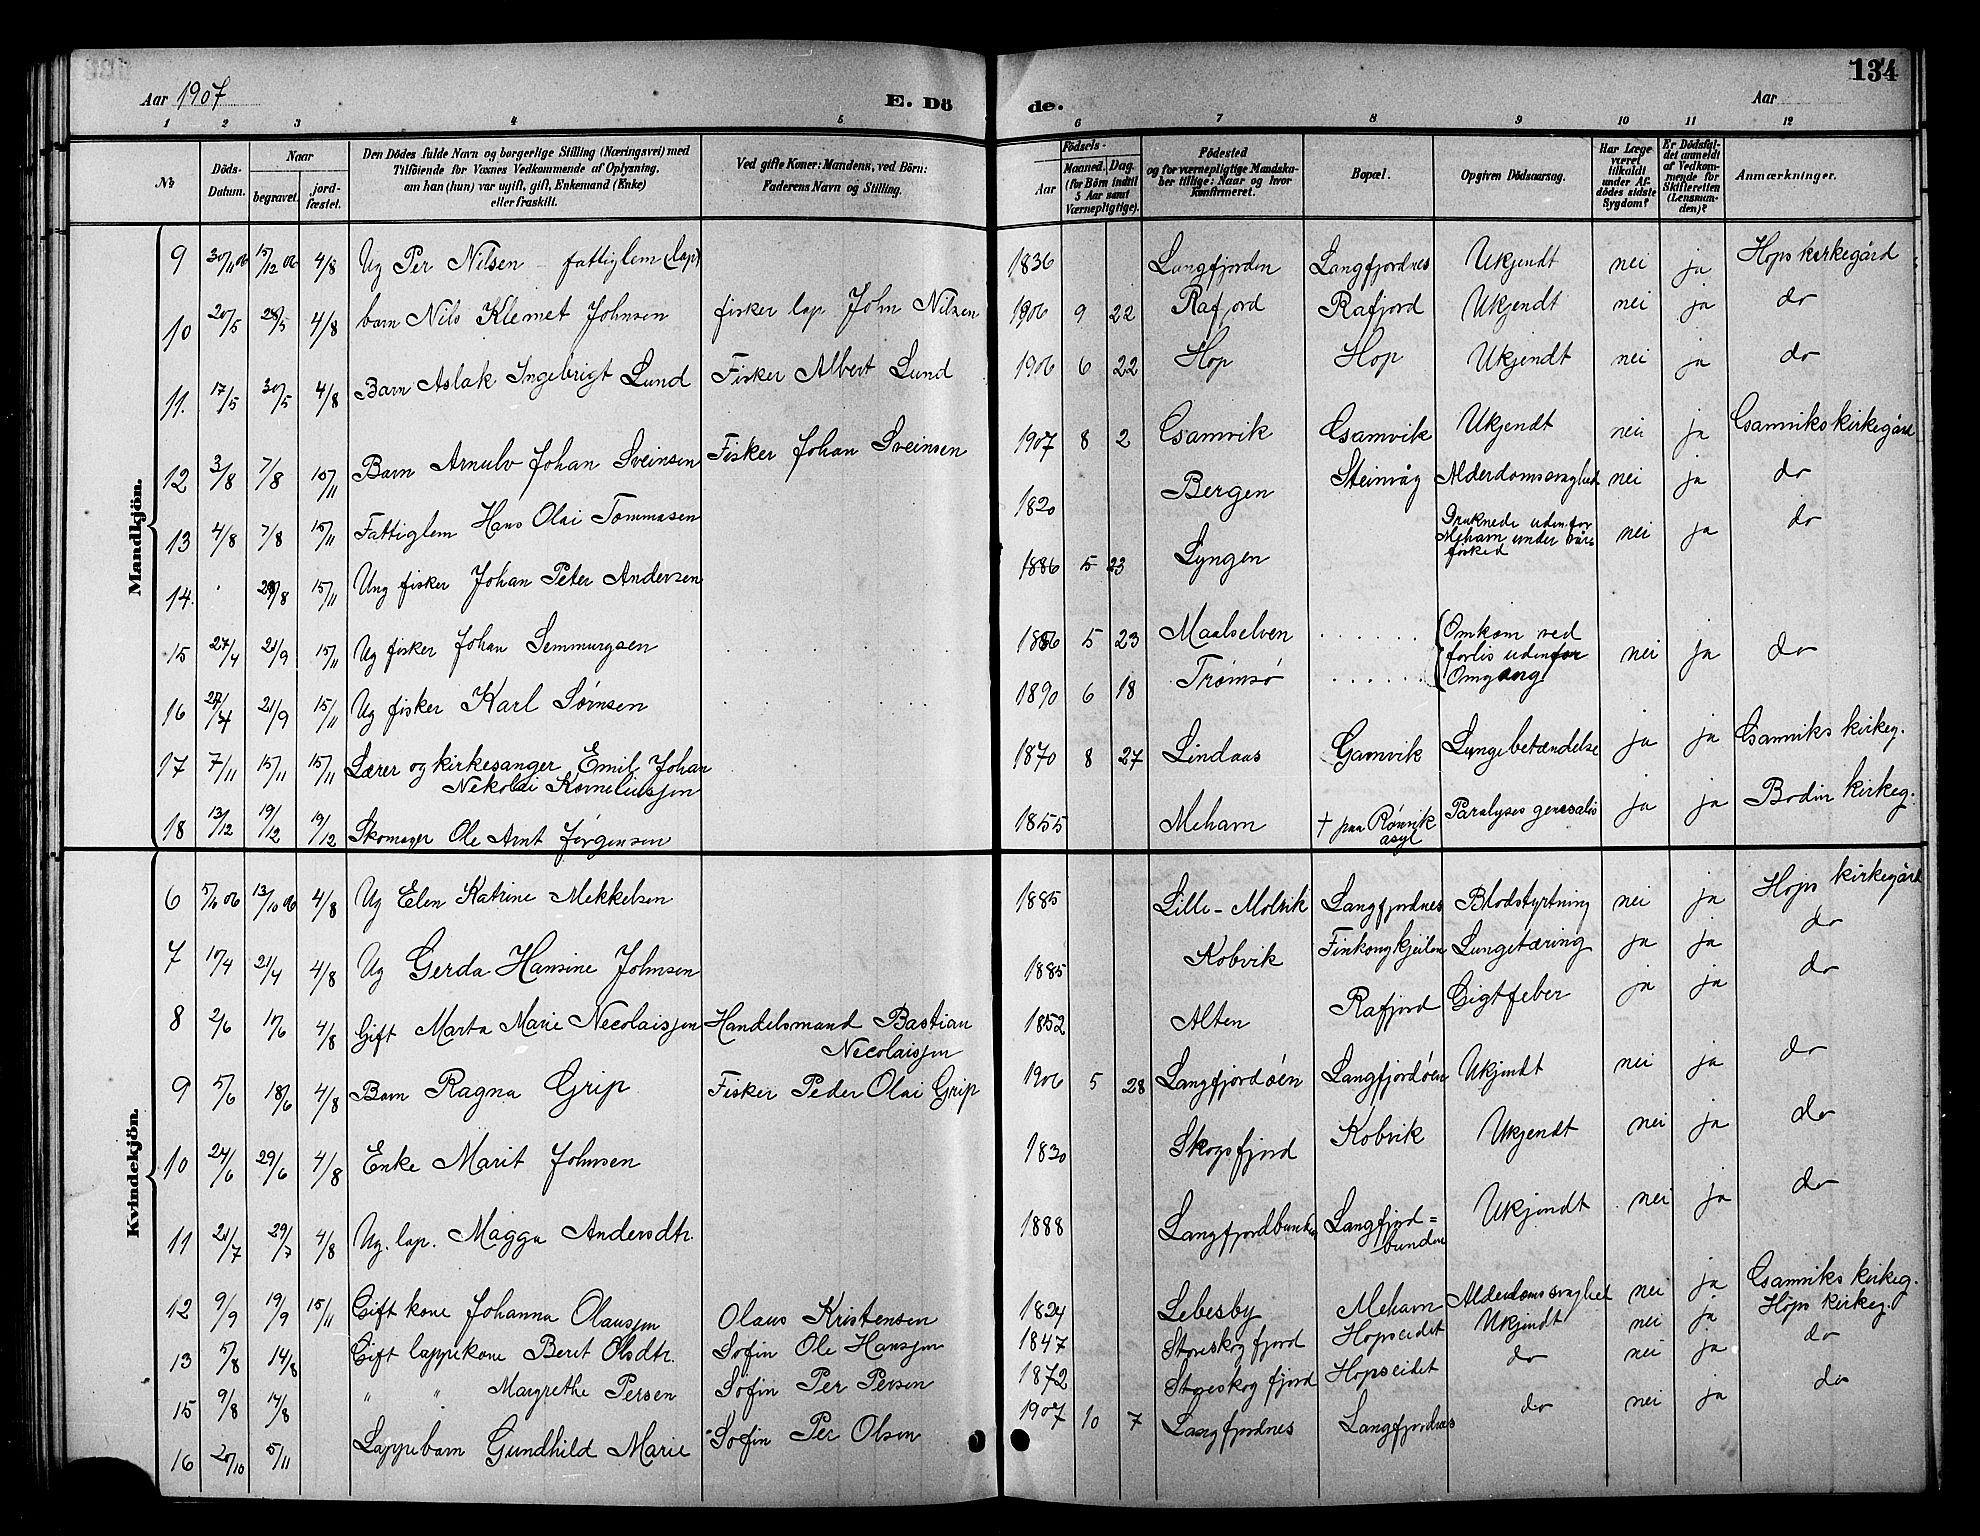 134
Aar 1907
E. Dö
de.
Aar
1 2 3 4 5 6 7 8 9 10 11 12
№
Döds-Datum.
Naar
begravet.
jord-fæstet.
Den Dödes fulde Navn og borgerlige Stilling (Næringsvei) med
Tilföiende for Voxnes Vedkommende af Oplysning,
om han (hun) var ugift, gift, Enkemand (Enke)
eller fraskilt.
Ved gifte Koner: Mandens, ved Börn:
Faderens Navn og Stilling.
Födsels-
Aar
Maaned. Dag.
(for Börn indtil
5 Aar samt
Værnepligtige).
Födested
og for værnepligtige Mandska-
ber tillige: Naar og hvor
konfirmeret.
Bopæl.
Opgiven Dödsaarsag.
Har Læge
været
tilkaldt
under Af-
dödes sidste
Sygdom?
Er Dödsfal-
det anmeldt
af Vedkom-
mende for
Skifteretten
(Lensman-
den)?
Anmærkninger.
Mandkjön.
9 30/11 06 15/12 06 4/8 Ug Per Nilsen - fattiglem (lap) 1836 Langfjorden Langfjordnes Ukjendt nei ja Hops kirkegård
10 20/5 28/5 4/8 barn Nils Klemet Johnsen fisker lap John Nilsen 1906 9 22 Rafjord Rafjord Ukjendt nei ja do
11. 17/5 30/5 4/8 Barn Aslak Ingebrigt Lund Fisker Albert Lund 1906 6 22 Hop Hop Ukjendt nei ja do
12 3/8 7/8 15/11 Barn Arnulv Johan Sveinsen Fisker Johan Sveinsen 1907 8 2 Gamvik Gamvik Ukjendt nei ja Gamviks kirkegård
13 4/8 7/8 15/11 Fattiglem Hans Olai Tommasen 1820 Bergen Steinvåg Alderdomssvaghed nei ja do
14. 15/11 Ung fisker Johan Peter Andersen 1886 5 23 Lyngen Druknede udenfor
Meham under
nei ja do
15 27/4 21/9 15/11 Ug fisker Johan Semmurgsen 5 23 Maalselven (Omkom ved
forlis udenfor
Omgang nei ja do
16 21/9 15/11 Ug fisker Karl Sörnsen 1890 6 18 Tromsø
17 7/11 15/11 15/11 Lærer og kirkesanger Emil Johan
Nekolai Korneliusjen 1870 8 27 Lindaas Gamvik Lungebetændelse ja ja Gamviks kirkeg.
18 13/12 19/12 19/12 Skomager Ole Arnt Jørgensen 1855 Meham + paa Rønvik
asyl Paralyses generalis ja ja Bodin kirkeg.
Kvindekjön.
6 5/10 06 13/10 06 4/8 Ug Elen Katrine Mekkelsen 1885 Lille-Molvik Langfjordnes Blodstyrtning nei ja Hops kirkegård
7 10/4 21/4 4/8 Ug Gerda Hansine Johnsen 1885 Kobvik Finkongkjeilen Lungetæring ja ja do
8 2/6 10/6 4/8 Gift Marta Marie Necolaisjen Handelsmand Bastian
Necolaisjen 1852 Alten Rafjord Gigtfeber ja ja do
9 5/6 18/6 4/8 Barn Ragna Grip Fisker Peder Olai Grip 1906 5 28 Langfjordøen Langfjordøen Ukjendt nei ja do
10 24/6 29/6 4/8 Enke Marit Johnsen 1830 Skogsfjord Kobvik Ukjendt nei ja do
11 21/7 29/7 4/8 Ug. lap. Magga Andersdtr. 1888 Langfjordbunden Langfjord=
bunden Ukjendt nei ja do
12 9/9 19/9 15/11 Gift kone Johanna Olausjen Olaus Kristensen 1824 Lebesby Meham Alderdomssvaghed nei ja Gamviks kirkeg.
13 5/8 14/8 Gift lappekone Beret Olsdtr. Sofin Ole Hansjen 1847 Storeskogfjord Hopseidet Ukjendt nei ja Hops kirkeg.
15 9/8 14/8 " " Margrethe Persen Sofin Per Persen 1872 Storeskogfjord Hopseidet do nei ja do
16 20/10 5/11 Lappebarn Gundhild Marie Sofin Per Olsen 1907 10 7 Langfjordnes Langfjordnes do nei ja do